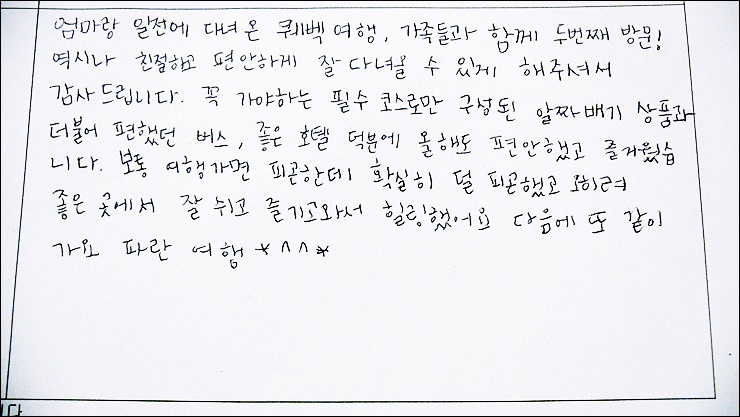 엄마랑 일전에 다녀온 퀘벡여행, 가족들과 함께 두번째 방문!
역시나 친절하고 편안하게 잘 다녀올 수 있게 해주셔서
감사드립니다. 꼭 가야하는 필수코스로만 구성된 알짜배기 상품과
더불어 편했던 버스, 좋은 호텔 덕분에 올해도 편안했고 즐거웠습
니다. 보통 여행가면 피곤한데 확실히 덜 피곤했고 오히려
좋은 곳에서 잘 쉬고 즐기고와서 힐링했어요 다음에 또 같이
가요 파란 여행 *^^*
니다